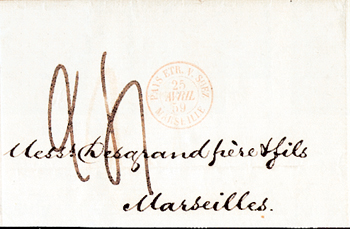 PAYS ETR. V. SUEZ
25
AVRIL
59
MARSEILLE
Mess.rs Desgrand frère & fils
Marseilles.